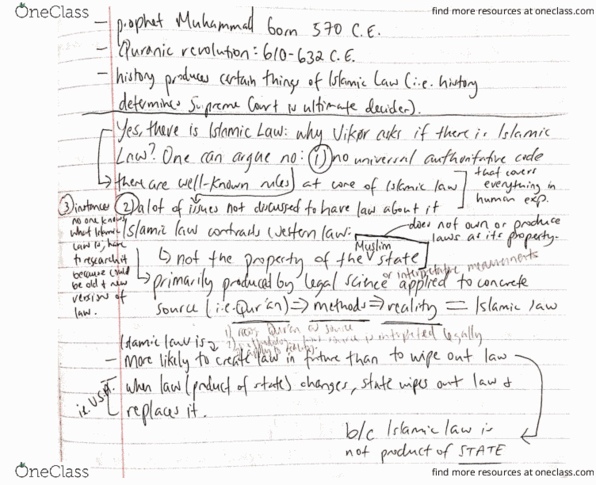 OneClass
find more resources at oneclass.com
- prophet Muhammad born 570 C.E.
- Quranic revolution: 610-632 C.E.
- history produces certain things of Islamic Law (i.e. history
determines Supreme Court is ultimate decider).
Yes, there is Islamic Law: why Vikør asks if there is Islamic
Law? One can argue no: ① no universal authoritative code
that covers everything in human exp.
→ there are well-known rules) at core of Islamic law
② a lot of issues not discussed to have law about it
③ instances
no one knows
what Islamic
law is, have
to research it
because could
be old & new
version of
law.
Islamic law contrasts western law:
does not own or produce
laws as its property.
↳ not the property of the Muslim state
↳ primarily produced by legal science or interpretative measurements applied to concrete
source (i.e. Qur'an) ⇒ methods ⇒ reality = Islamic law
Islamic law is
- More likely to create law in future than to wipe out law
i.e. USA.
when law (product of state) changes, state wipes out law &
replaces it.
b/c Islamic law is
not product of STATE
OneClass
find more resources at oneclass.com